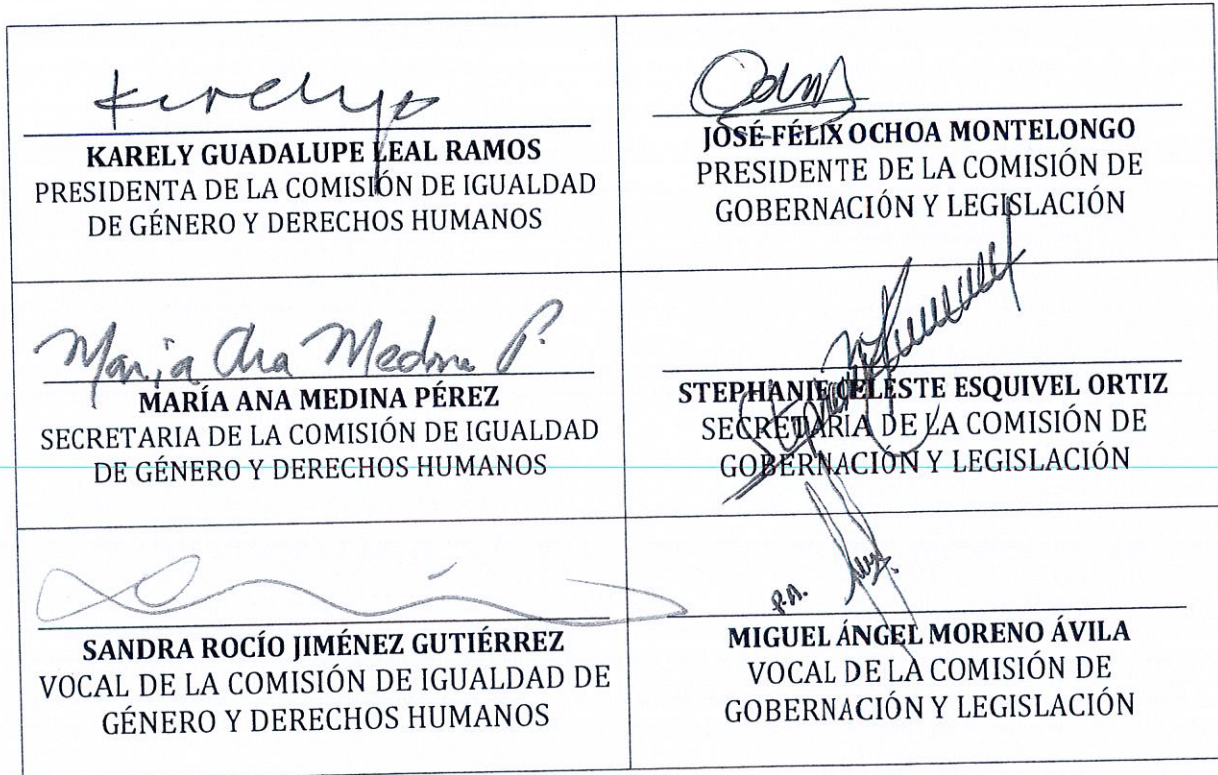 Karelyp
KARELY GUADALUPE LEAL RAMOS
PRESIDENTA DE LA COMISIÓN DE IGUALDAD
DE GÉNERO Y DERECHOS HUMANOS
JOSÉ FÉLIX OCHOA MONTELONGO
PRESIDENTE DE LA COMISIÓN DE
GOBERNACIÓN Y LEGISLACIÓN
Maria Ana Medina P.
MARÍA ANA MEDINA PÉREZ
SECRETARIA DE LA COMISIÓN DE IGUALDAD
DE GÉNERO Y DERECHOS HUMANOS
STEPHANIE CELESTE ESQUIVEL ORTIZ
SECRETARIA DE LA COMISIÓN DE
GOBERNACIÓN Y LEGISLACIÓN
SANDRA ROCÍO JIMÉNEZ GUTIÉRREZ
VOCAL DE LA COMISIÓN DE IGUALDAD DE
GÉNERO Y DERECHOS HUMANOS
P.A.
MIGUEL ÁNGEL MORENO ÁVILA
VOCAL DE LA COMISIÓN DE
GOBERNACIÓN Y LEGISLACIÓN